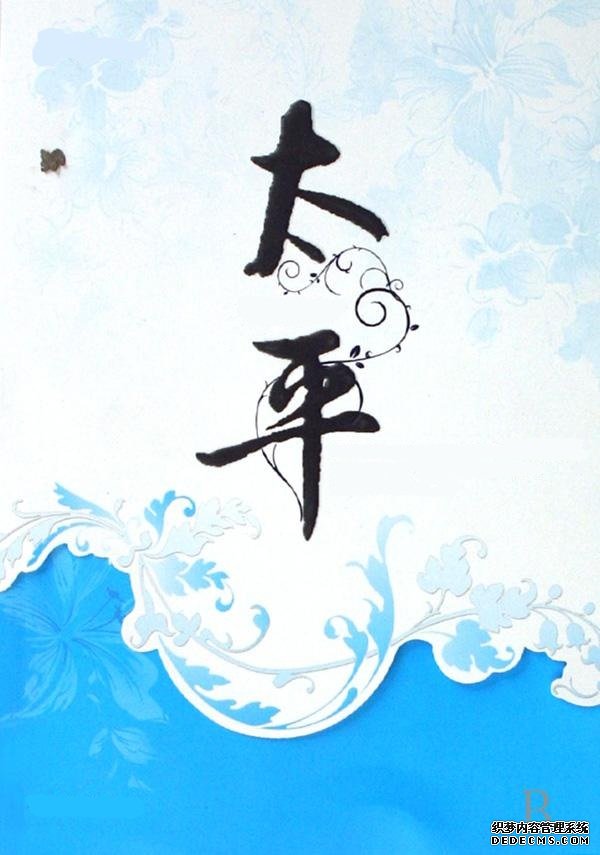 太
平
R
织梦内容管理系统
DEDECMS.COM